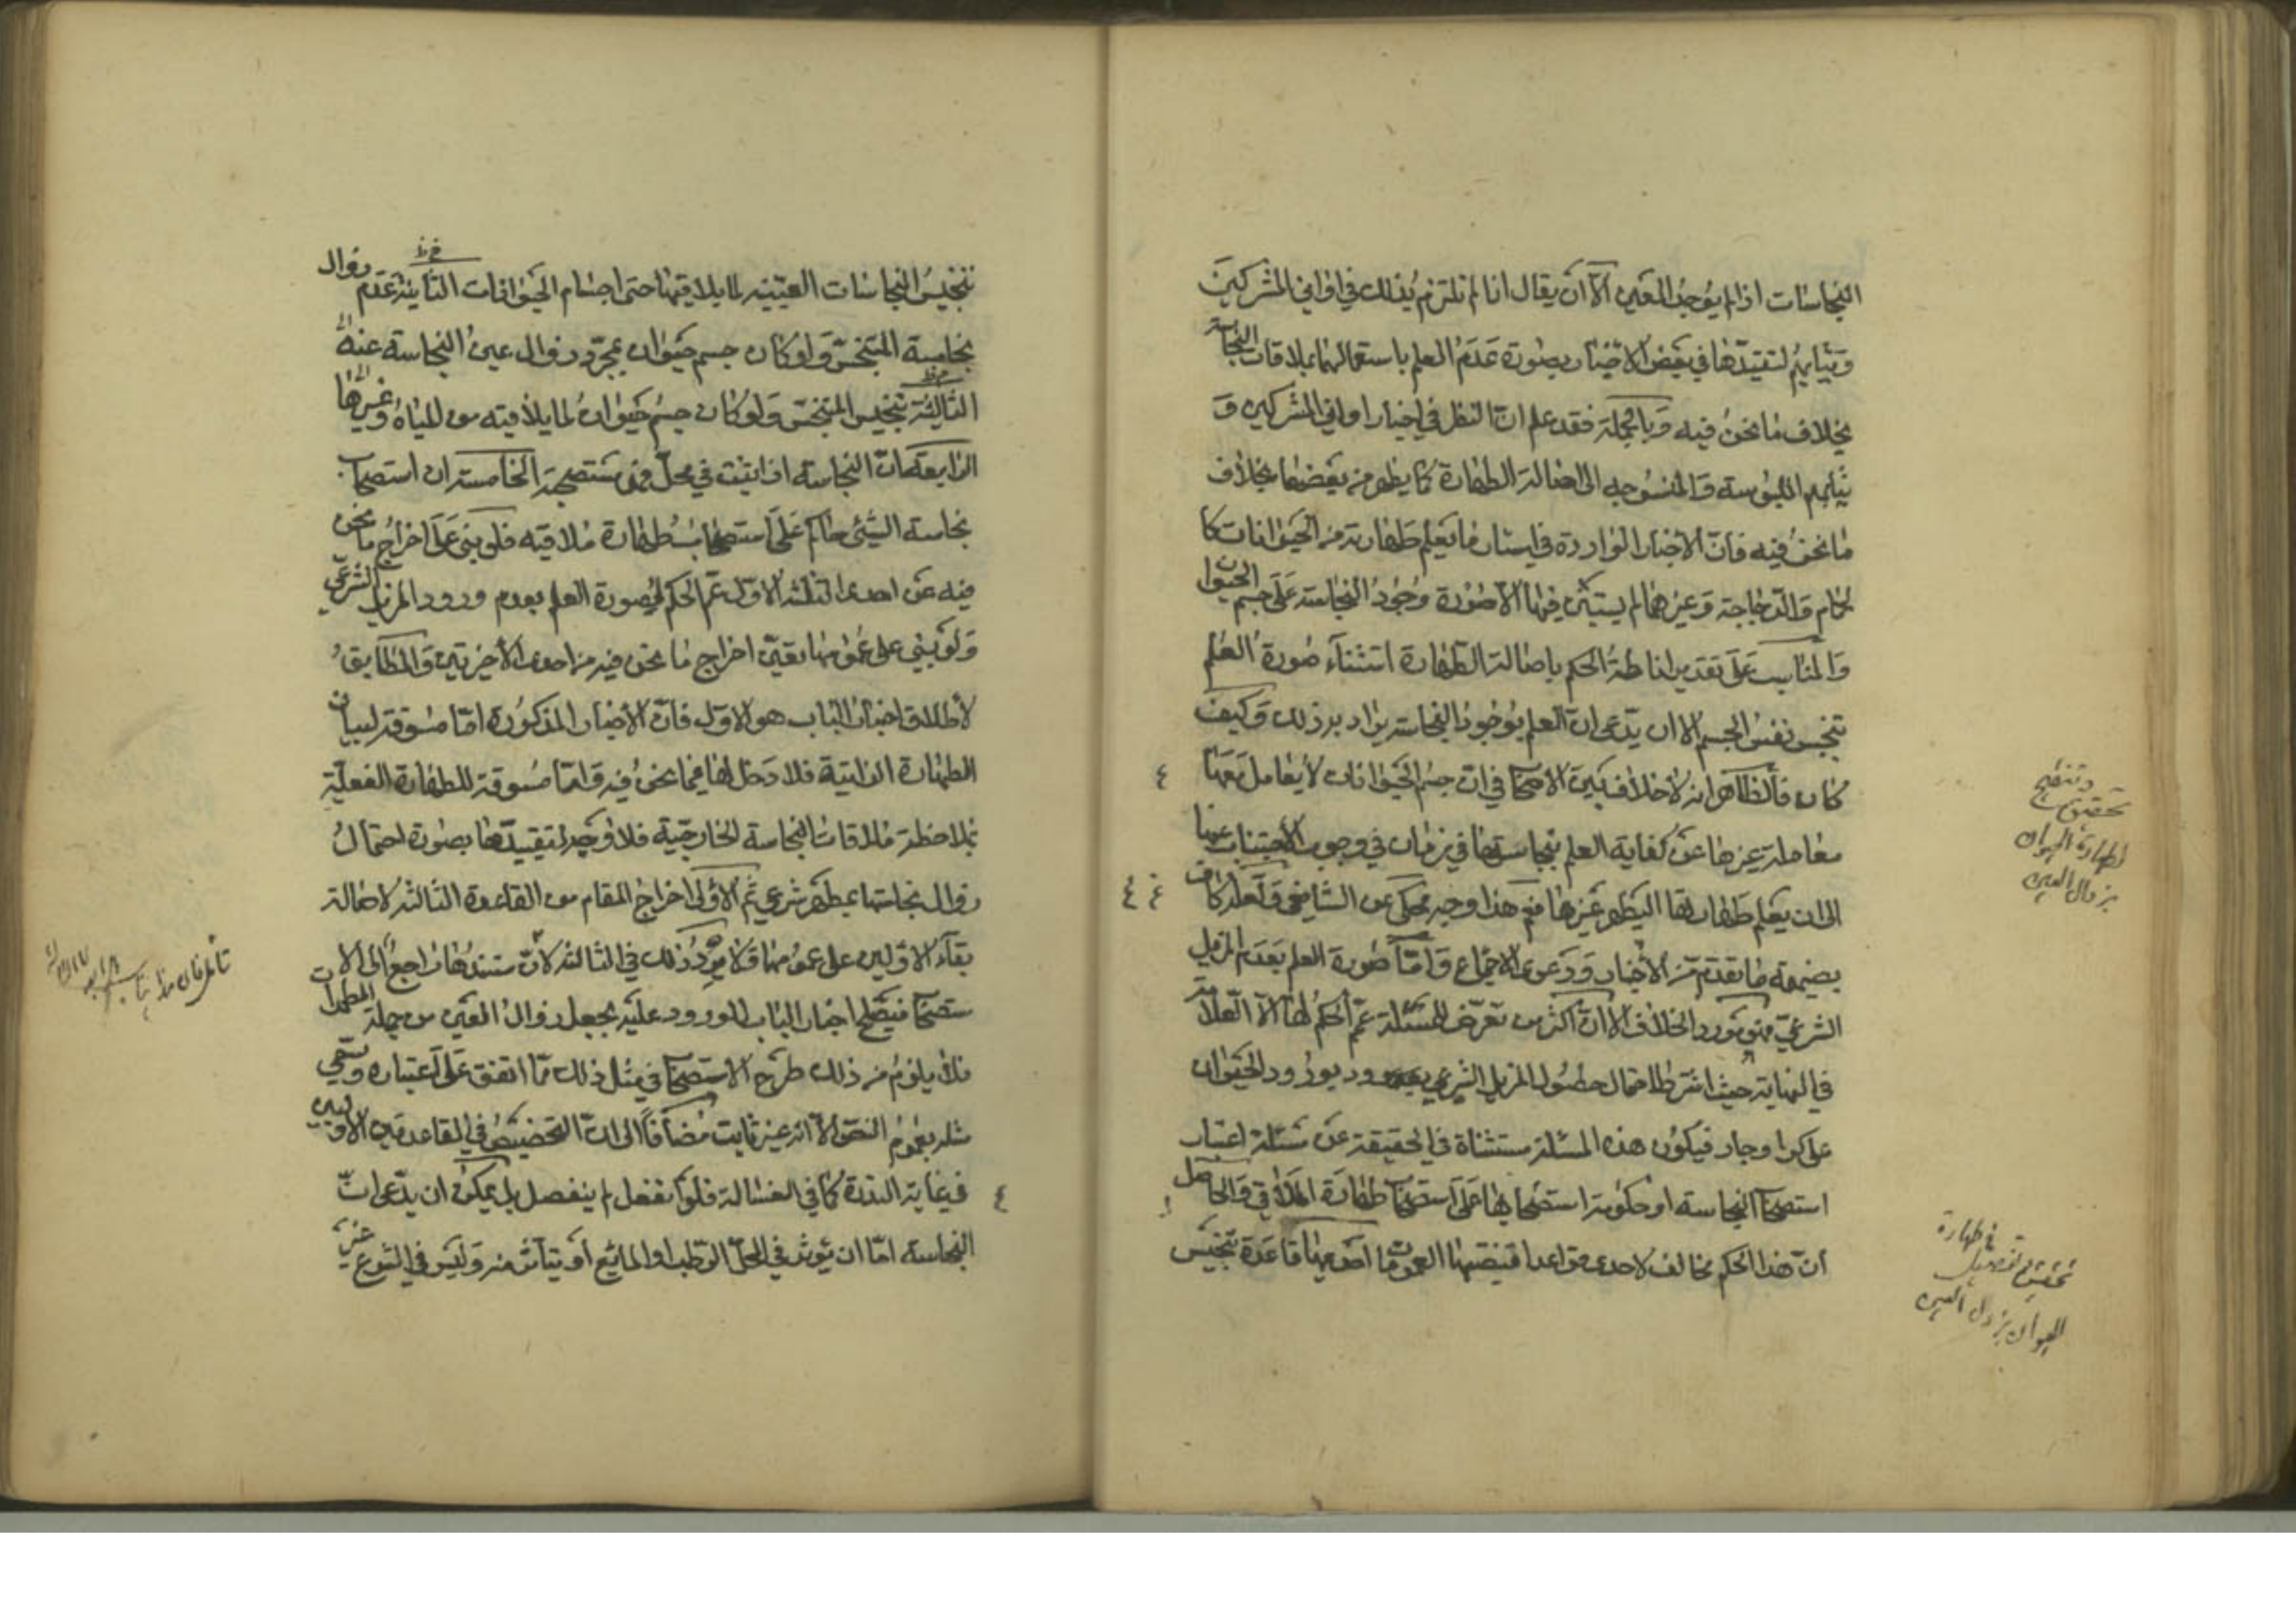 النجاسات اذا لم يوجد العين الا ان يقال انا لم نلتزم بذلك في اواني المشركين
وثيابهم لتقييدها في بعض الاخبار بصورة عدم العلم باستعمالها بملاقات النجاسة
بخلاف ما نحن فيه وبالجملة فقد علم ان النظر في اخبار اواني المشركين و
ثيابهم الملبوسة والمنسوجه الى اصالة الطهارة كما يظهر من بعضها بخلاف
ما نحن فيه فان الاخبار الواردة في اسئار ما يعلم طهارته من الحيوانات كا
لحمام والدجاجة وغيرهما لم يستثن فيها الا صورة وجود النجاسة على جسم الحيوان
والمناسب على تقدير اناطة الحكم باصالة الطهارة استثناء صورة العلم
تنجس نفس الجسم الا ان يدعى ان العلم بوجود النجاسة يراد به ذلك وكيف
كان فالظاهر انه لا خلاف بين الاصحاب في ان جسم الحيوانات لا يعامل معها
معاملة غيرها عن كفاية العلم بنجاستها في زمان في وجوب الاجتناب عنها
الى ان يعلم طهارتها نعم هذا وجه محكى عن الشافعى ولعله كاف
بضميمة ما تقدم من الاخبار ودعوى الاجماع واما صورة العلم بعدم المزيل
الشرعي فهو مورد الخلاف الا ان اكثر من تعرض للمسئلة عم الحكم لها الا العلامة
في النهاية حيث اشترط احتمال حصول المزيل الشرعي ورود الحيوان
على كر او جار فيكون هذه المسئلة مستثناة في الحقيقة عن مسئلة اعتبار
استصحاب النجاسة او حكومة استصحابها على استصحاب طهارة الملاقي والحاصل
ان هذا الحكم مخالف لاحدى قواعد اقتضتها العمومات احديها قاعدة تنجيس
تحقيق وتنقيح
لطهارة الحيوان
بزوال العين
تحقيق تفصيل في طهارة
الحيوان بزوال العين
تنجيس النجاسات العينيه لما يلاقيها حتى اجسام الحيوانات الثانية عدم زوال
نجاسة المتنجس ولو كان جسم حيوان بمجرد زوال عين النجاسة عنه
الثالثة تنجيس المتنجس ولو كان جسم حيوان لما يلاقيه من المياه وغيرها
الرابعة ان النجاسة اذا ثبتت في محل فهى مستصحبة الخامسة ان استصحاب
نجاسة الشئ حاكم على استصحاب طهارة ملاقيه فلو بنى على اخراج ما نحن
فيه عن احدى الثلثة الاول عم الحكم لصورة العلم بعدم ورود المزيل الشرعي
ولو بنى على عمومها تعين اخراج ما نحن فيه من احدى الاخيرتين والمطابق
لاطلاق اخبار الباب هو الاول فان الاخبار المذكورة اما مسوقة لبيان
الطهارة الذاتية فلا دخل لها فيما نحن فيه واما مسوقة للطهارة الفعلية
بملاحظة ملاقات النجاسة الخارجية فلا وجه لتقييدها بصورة احتمال
زوال نجاستها بمطهر شرعي ثم الاولى اخراج المقام من القاعدة الثالثة لاصالة
بقاء الاولين على عمومهما ولا يرد ذلك في الثالثة لان مستندها راجع الى الا
ستصحاب فيصلح اخبار الباب للورود عليه بجعل زوال العين من جملة المطهرات
فلا يلزم من ذلك طرح الاستصحاب في مثل ذلك مما اتفق على اعتباره
مثله بعموم النص الا انه غير ثابت مضافا الى ان التخصيص في القاعدتين الاوليين
في غاية الندرة كما في الغسالة فلو انفعل لم ينفصل بل يمكن ان يدعى ان
النجاسة اما ان يؤثر في المحل الرطب او المايع او يتأثر منه وليس في الشرع غير